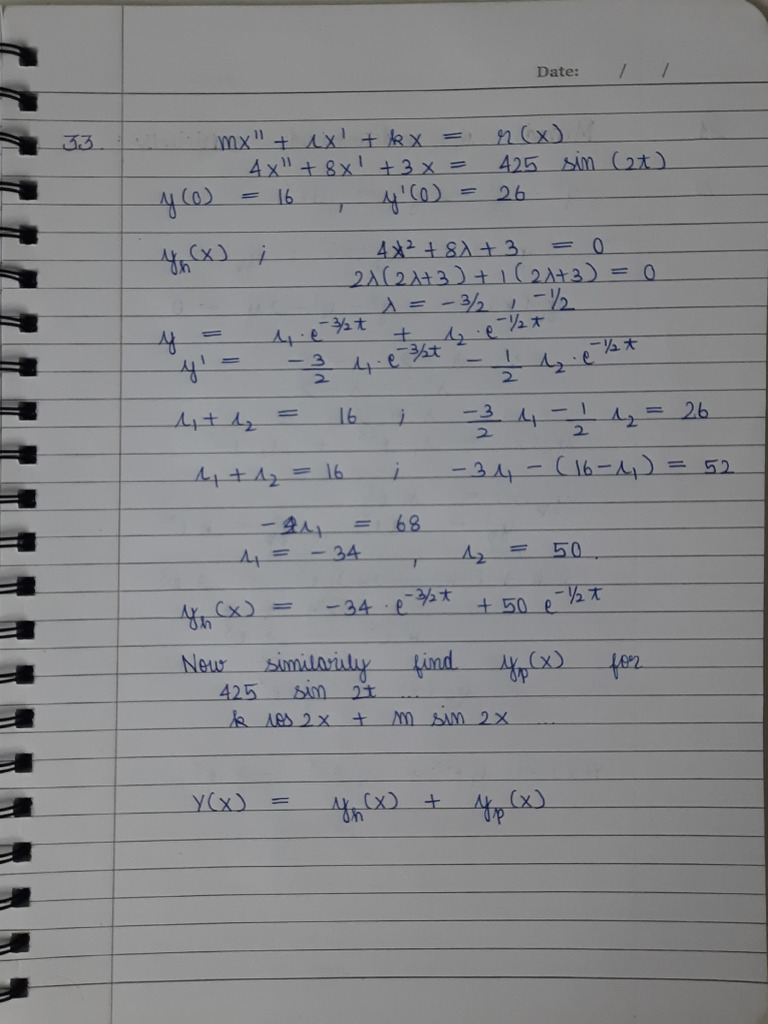 Date: / /
33. mx" + cx' + kx = r(x)
4x" + 8x' + 3x = 425 sin (2t)
y(0) = 16 , y'(0) = 26
yh(x) ; 4λ² + 8λ + 3 = 0
2λ(2λ+3) + 1(2λ+3) = 0
λ = -3/2 , -1/2
y = c₁·e^-3/2t + c₂·e^-1/2t
y' = -3/2 c₁·e^-3/2t - 1/2 c₂·e^-1/2t
c₁ + c₂ = 16 ; -3/2 c₁ - 1/2 c₂ = 26
c₁ + c₂ = 16 ; -3c₁ - (16-c₁) = 52
-2c₁ = 68
c₁ = -34 , c₂ = 50.
yh(x) = -34 · e^-3/2t + 50 e^-1/2t
Now similarily find yp(x) for
425 sin 2t ...
k cos 2x + m sin 2x ...
Y(x) = yh(x) + yp(x)